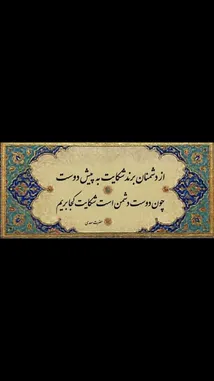 از دشمنان برند شکایت به پیش دوست
چون دوست دشمن است شکایت کجا بریم
حضرت سعدی